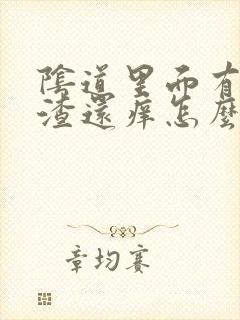 陰道里面有
渣還痒怎麼
章均賽